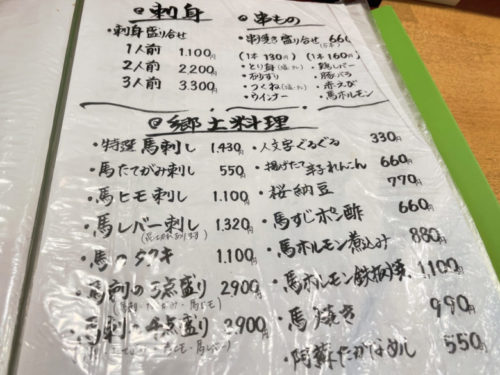 刺身
・刺身盛り合せ
1人前 1.100円
2人前 2.200円
3人前 3.300円
串もの
・串焼き盛り合せ 660
(1本 130円) (1本 160円)
・とり身(塩・タレ) ・鶏レバー
・砂ずり ・豚バラ
・つくね(塩・タレ) ・赤えび
・ウインナー ・馬ホルモン
郷土料理
・特選馬刺し 1.430円
・馬たてがみ刺し 550円
・馬ヒモ刺し 1.100円
・馬レバー刺し 1.320円
・馬 タタキ 1.100円
・馬刺の3点盛り 2900円
・馬刺の 点盛り 3900円
・人文字ぐるぐる 330円
・揚げたて辛子れんこん 660円
・桜納豆 770円
・馬すじポン酢 660円
・馬ホルモン煮込み 880円
・馬ホルモン鉄板焼 1,100円
・馬焼き 990円
・阿蘇たかなめし 550円